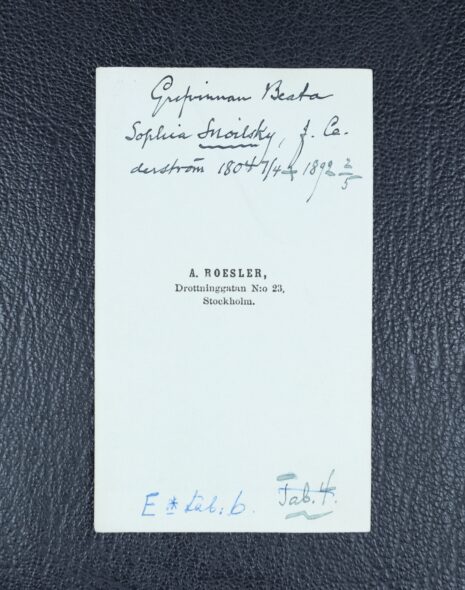 Grefvinnan Beata
Sophia Snoilsky, f. Ce-
derström 1804 7/4 - 1892 2/5
A. ROESLER,
Drottninggatan N:o 23,
Stockholm.
E * tab: 6. Tab. 4.